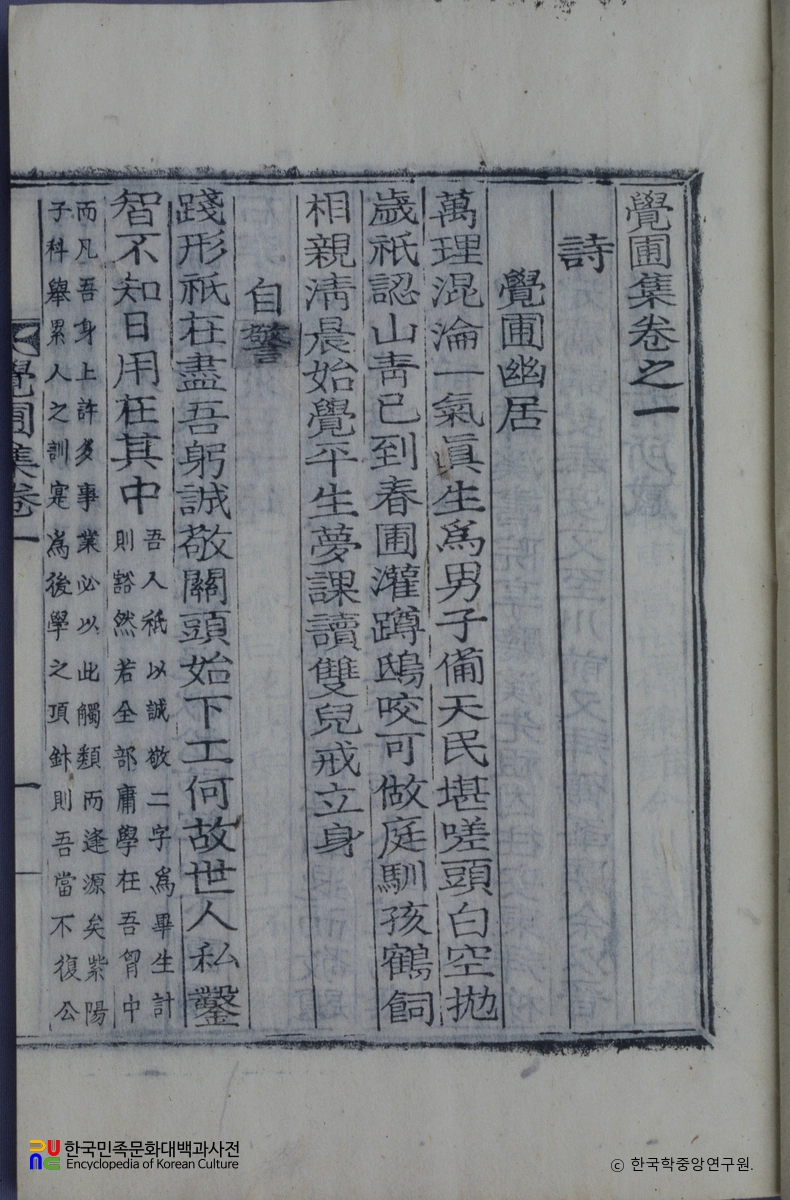 覺圃集卷之一
詩
覺圃幽居
萬理混淪一氣眞生爲男子備天民堪嗟頭白空抛
歲祇認山靑已到春圃灌蹲鴟咬可做庭馴孩鶴飼
相親淸晨始覺平生夢課讀雙兒戒立身
自警
踐形祇在盡吾躬誠敬關頭始下工何故世人私鑿
智不知日用在其中
吾人祇以誠敬二字爲畢生計
則豁然若全部庸學在吾胷中
而凡吾身上許多事業必以此觸類而逢源矣紫陽
子科擧累人之訓寔爲後學之頂針則吾當不復公
覺圃集卷一
一
한국민족문화대백과사전
Encyclopedia of Korean Culture
ⓒ 한국학중앙연구원.